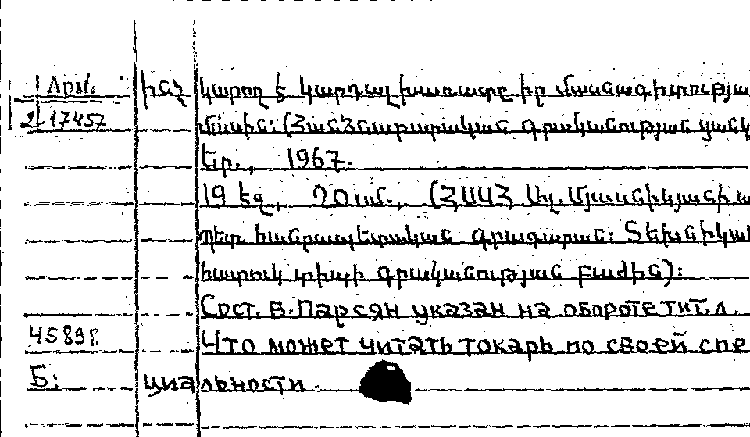 Արմ. ԻՆՉ կարող է կարդալ խառատը իր մասնագիտությա
2/17457 մասին: (Հանձնարարական գրականության ցանկ
Եր., 1967.
19 էջ, 20 սմ., (ՀՍՍՀ Ալ. Մյասնիկյանի ա
պետ. հանրապետական գրադարան: Տեխնիկակ
հատուկ տիպի գրականության բաժին):
Сост. В. Парсян указан на обороте тит. л.
45898 Что может читать токарь по своей спе
Б: циальности